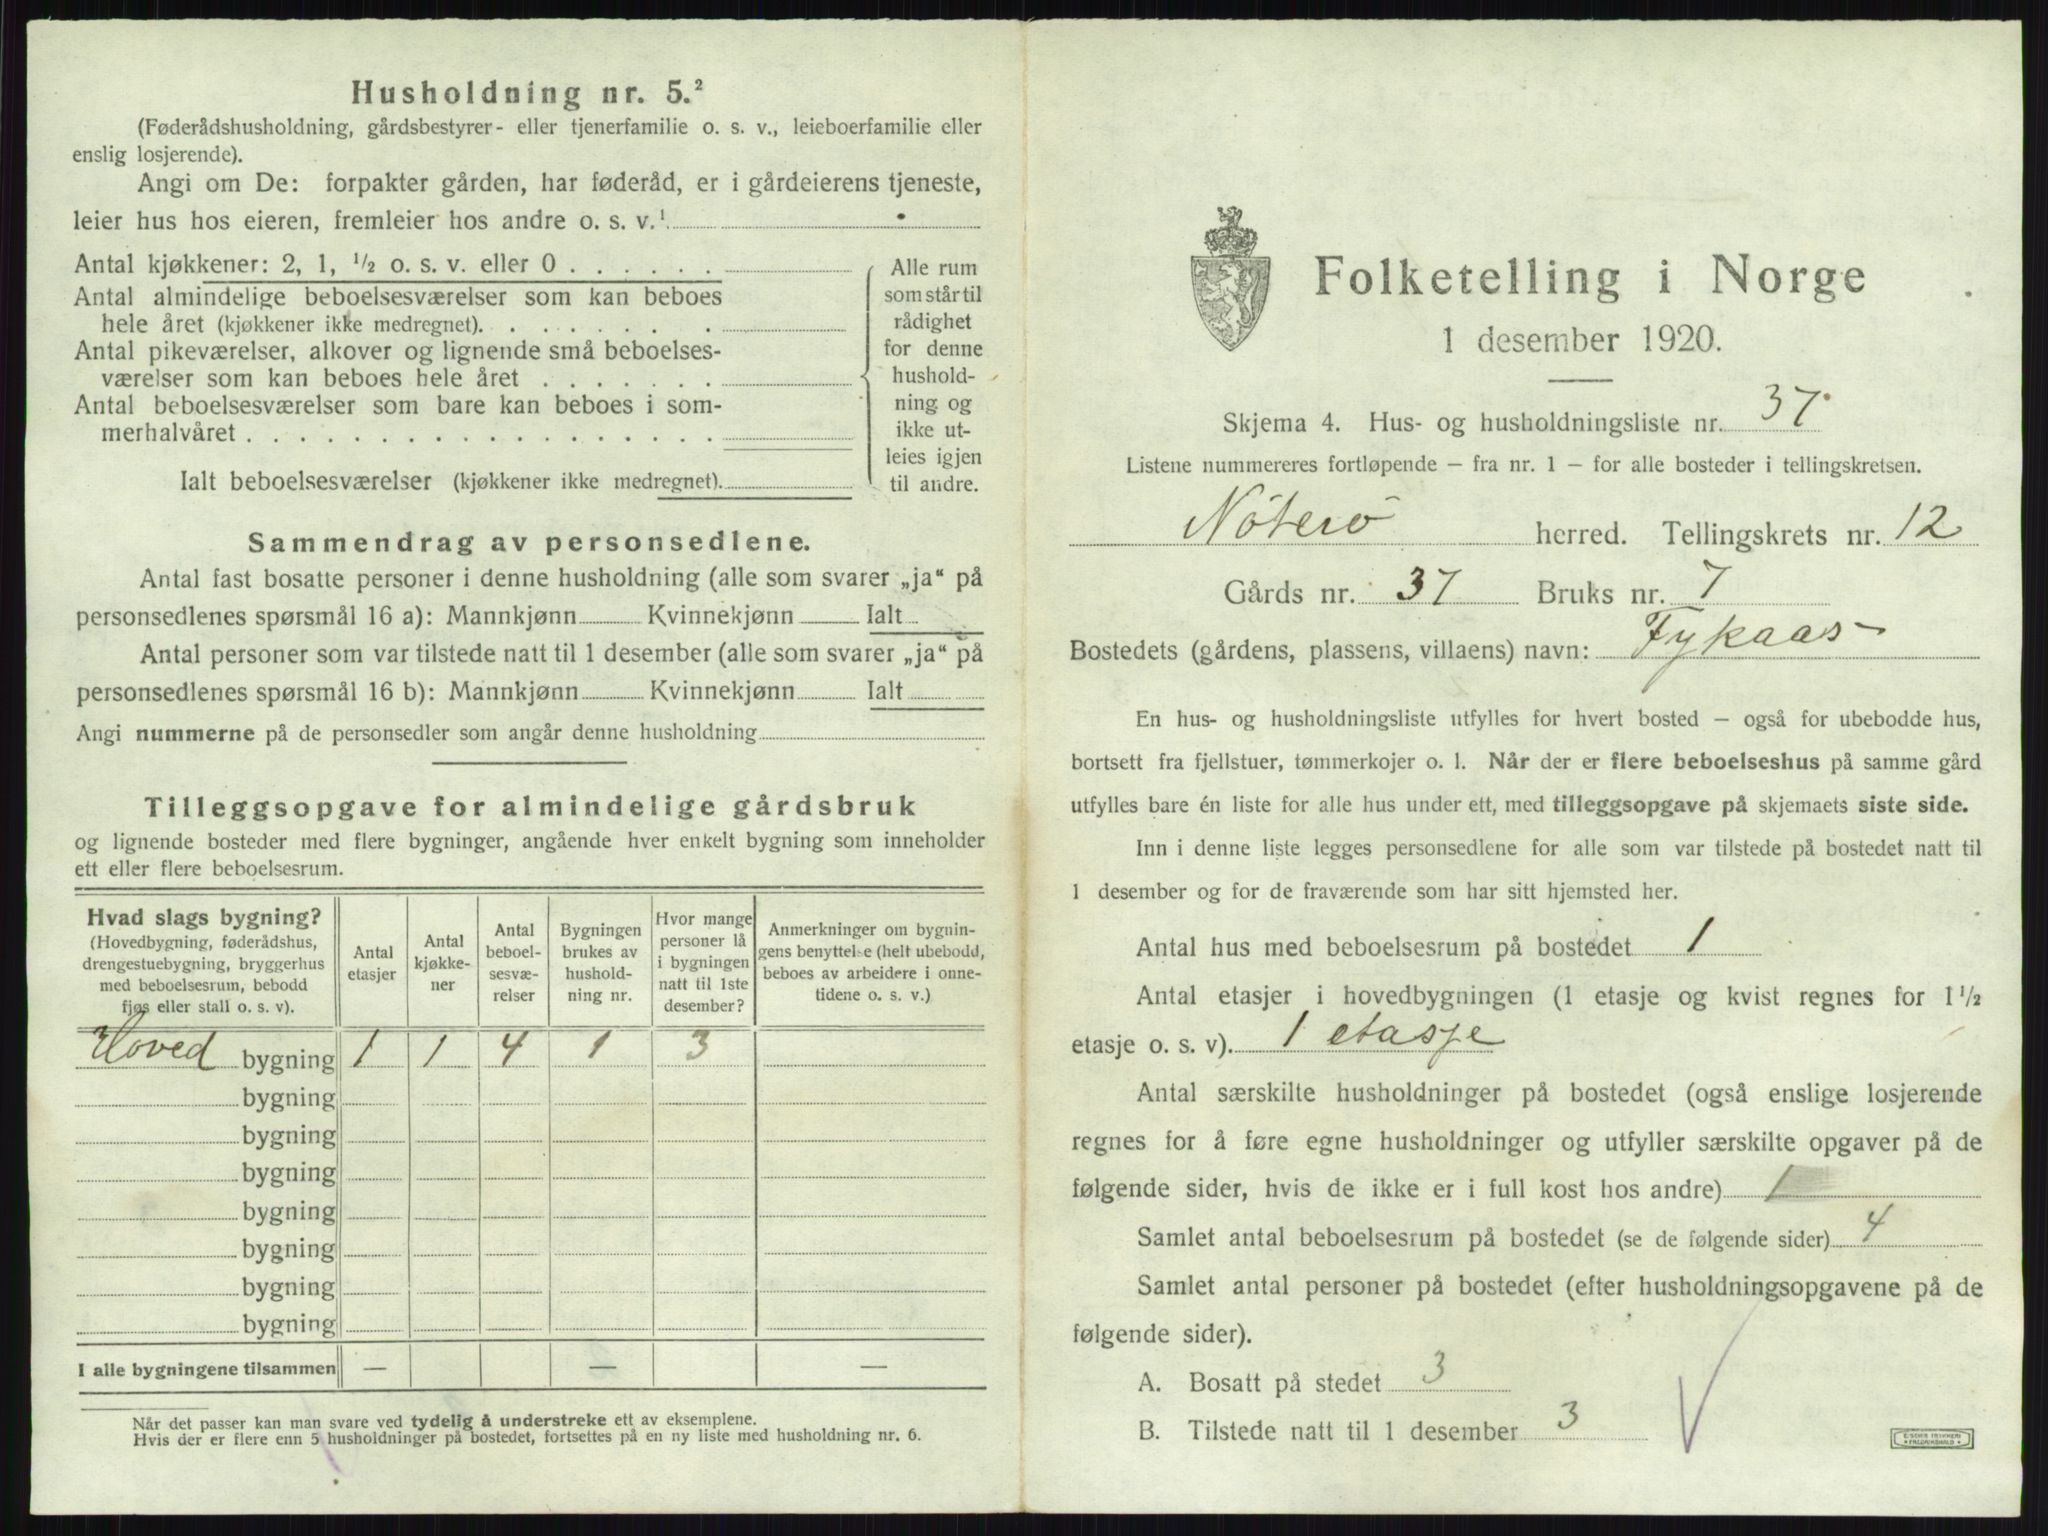 Husholdning nr. 5.²
(Føderådshusholdning, gårdsbestyrer- eller tjenerfamilie o. s. v., leieboerfamilie eller
enslig losjerende).
Angi om De: forpakter gården, har føderåd, er i gårdeierens tjeneste,
leier hus hos eieren, fremleier hos andre o. s. v.¹
Antal kjøkkener: 2, 1, ¹/₂ o. s. v. eller 0 . . . . . .
Antal almindelige beboelsesværelser som kan beboes
hele året (kjøkkener ikke medregnet). . . . . . . .
Antal pikeværelser, alkover og lignende små beboelses-
værelser som kan beboes hele året . . . . . . .
Antal beboelsesværelser som bare kan beboes i som-
merhalvåret . . . . . . . . . . . . . . . . . .
Ialt beboelsesværelser (kjøkkener ikke medregnet).
Alle rum
som står til
rådighet
for denne
hushold-
ning og
ikke ut-
leies igjen
til andre.
Sammendrag av personsedlene.
Antal fast bosatte personer i denne husholdning (alle som svarer „ja“ på
personsedlenes spørsmål 16 a): Mannkjønn Kvinnekjønn Ialt
Antal personer som var tilstede natt til 1 desember (alle som svarer „ja“ på
personsedlenes spørsmål 16 b): Mannkjønn Kvinnekjønn Ialt
Angi nummerne på de personsedler som angår denne husholdning
Tilleggsopgave for almindelige gårdsbruk
og lignende bosteder med flere bygninger, angående hver enkelt bygning som inneholder
ett eller flere beboelsesrum.
Hvad slags bygning?
(Hovedbygning, føderådshus,
drengestuebygning, bryggerhus
med beboelsesrum, bebodd
fjøs eller stall o. s. v).
Antal
etasjer
Antal
kjøkke-
ner
Antal
beboel-
sesvæ-
relser
Bygningen
brukes av
hushold-
ning nr.
Hvor mange
personer lå
i bygningen
natt til 1ste
desember?
Anmerkninger om bygnin-
gens benyttelse (helt ubebodd,
beboes av arbeidere i onne-
tidene o. s. v.)
Hoved bygning 1 1 4 1 3
bygning
bygning
bygning
bygning
bygning
bygning
bygning
I alle bygningene tilsammen — — —
Når det passer kan man svare ved tydelig å understreke ett av eksemplene.
Hvis der er flere enn 5 husholdninger på bostedet, fortsettes på en ny liste med husholdning nr. 6.
Folketelling i Norge
1 desember 1920.
Skjema 4. Hus- og husholdningsliste nr. 37
Listene nummereres fortløpende — fra nr. 1 — for alle bosteder i tellingskretsen.
Nöterö herred. Tellingskrets nr. 12
Gårds nr. 37 Bruks nr. 7
Bostedets (gårdens, plassens, villaens) navn: Fykaas
En hus- og husholdningsliste utfylles for hvert bosted — også for ubebodde hus,
bortsett fra fjellstuer, tømmerkojer o. l. Når der er flere beboelseshus på samme gård
utfylles bare én liste for alle hus under ett, med tilleggsopgave på skjemaets siste side.
Inn i denne liste legges personsedlene for alle som var tilstede på bostedet natt til
1 desember og for de fraværende som har sitt hjemsted her.
Antal hus med beboelsesrum på bostedet 1
Antal etasjer i hovedbygningen (1 etasje og kvist regnes for 1 ¹/₂
etasje o. s. v). 1 etasje
Antal særskilte husholdninger på bostedet (også enslige losjerende
regnes for å føre egne husholdninger og utfyller særskilte opgaver på de
følgende sider, hvis de ikke er i full kost hos andre) 1
Samlet antal beboelsesrum på bostedet (se de følgende sider) 4
Samlet antal personer på bostedet (efter husholdningsopgavene på de
følgende sider).
A. Bosatt på stedet 3
B. Tilstede natt til 1 desember 3